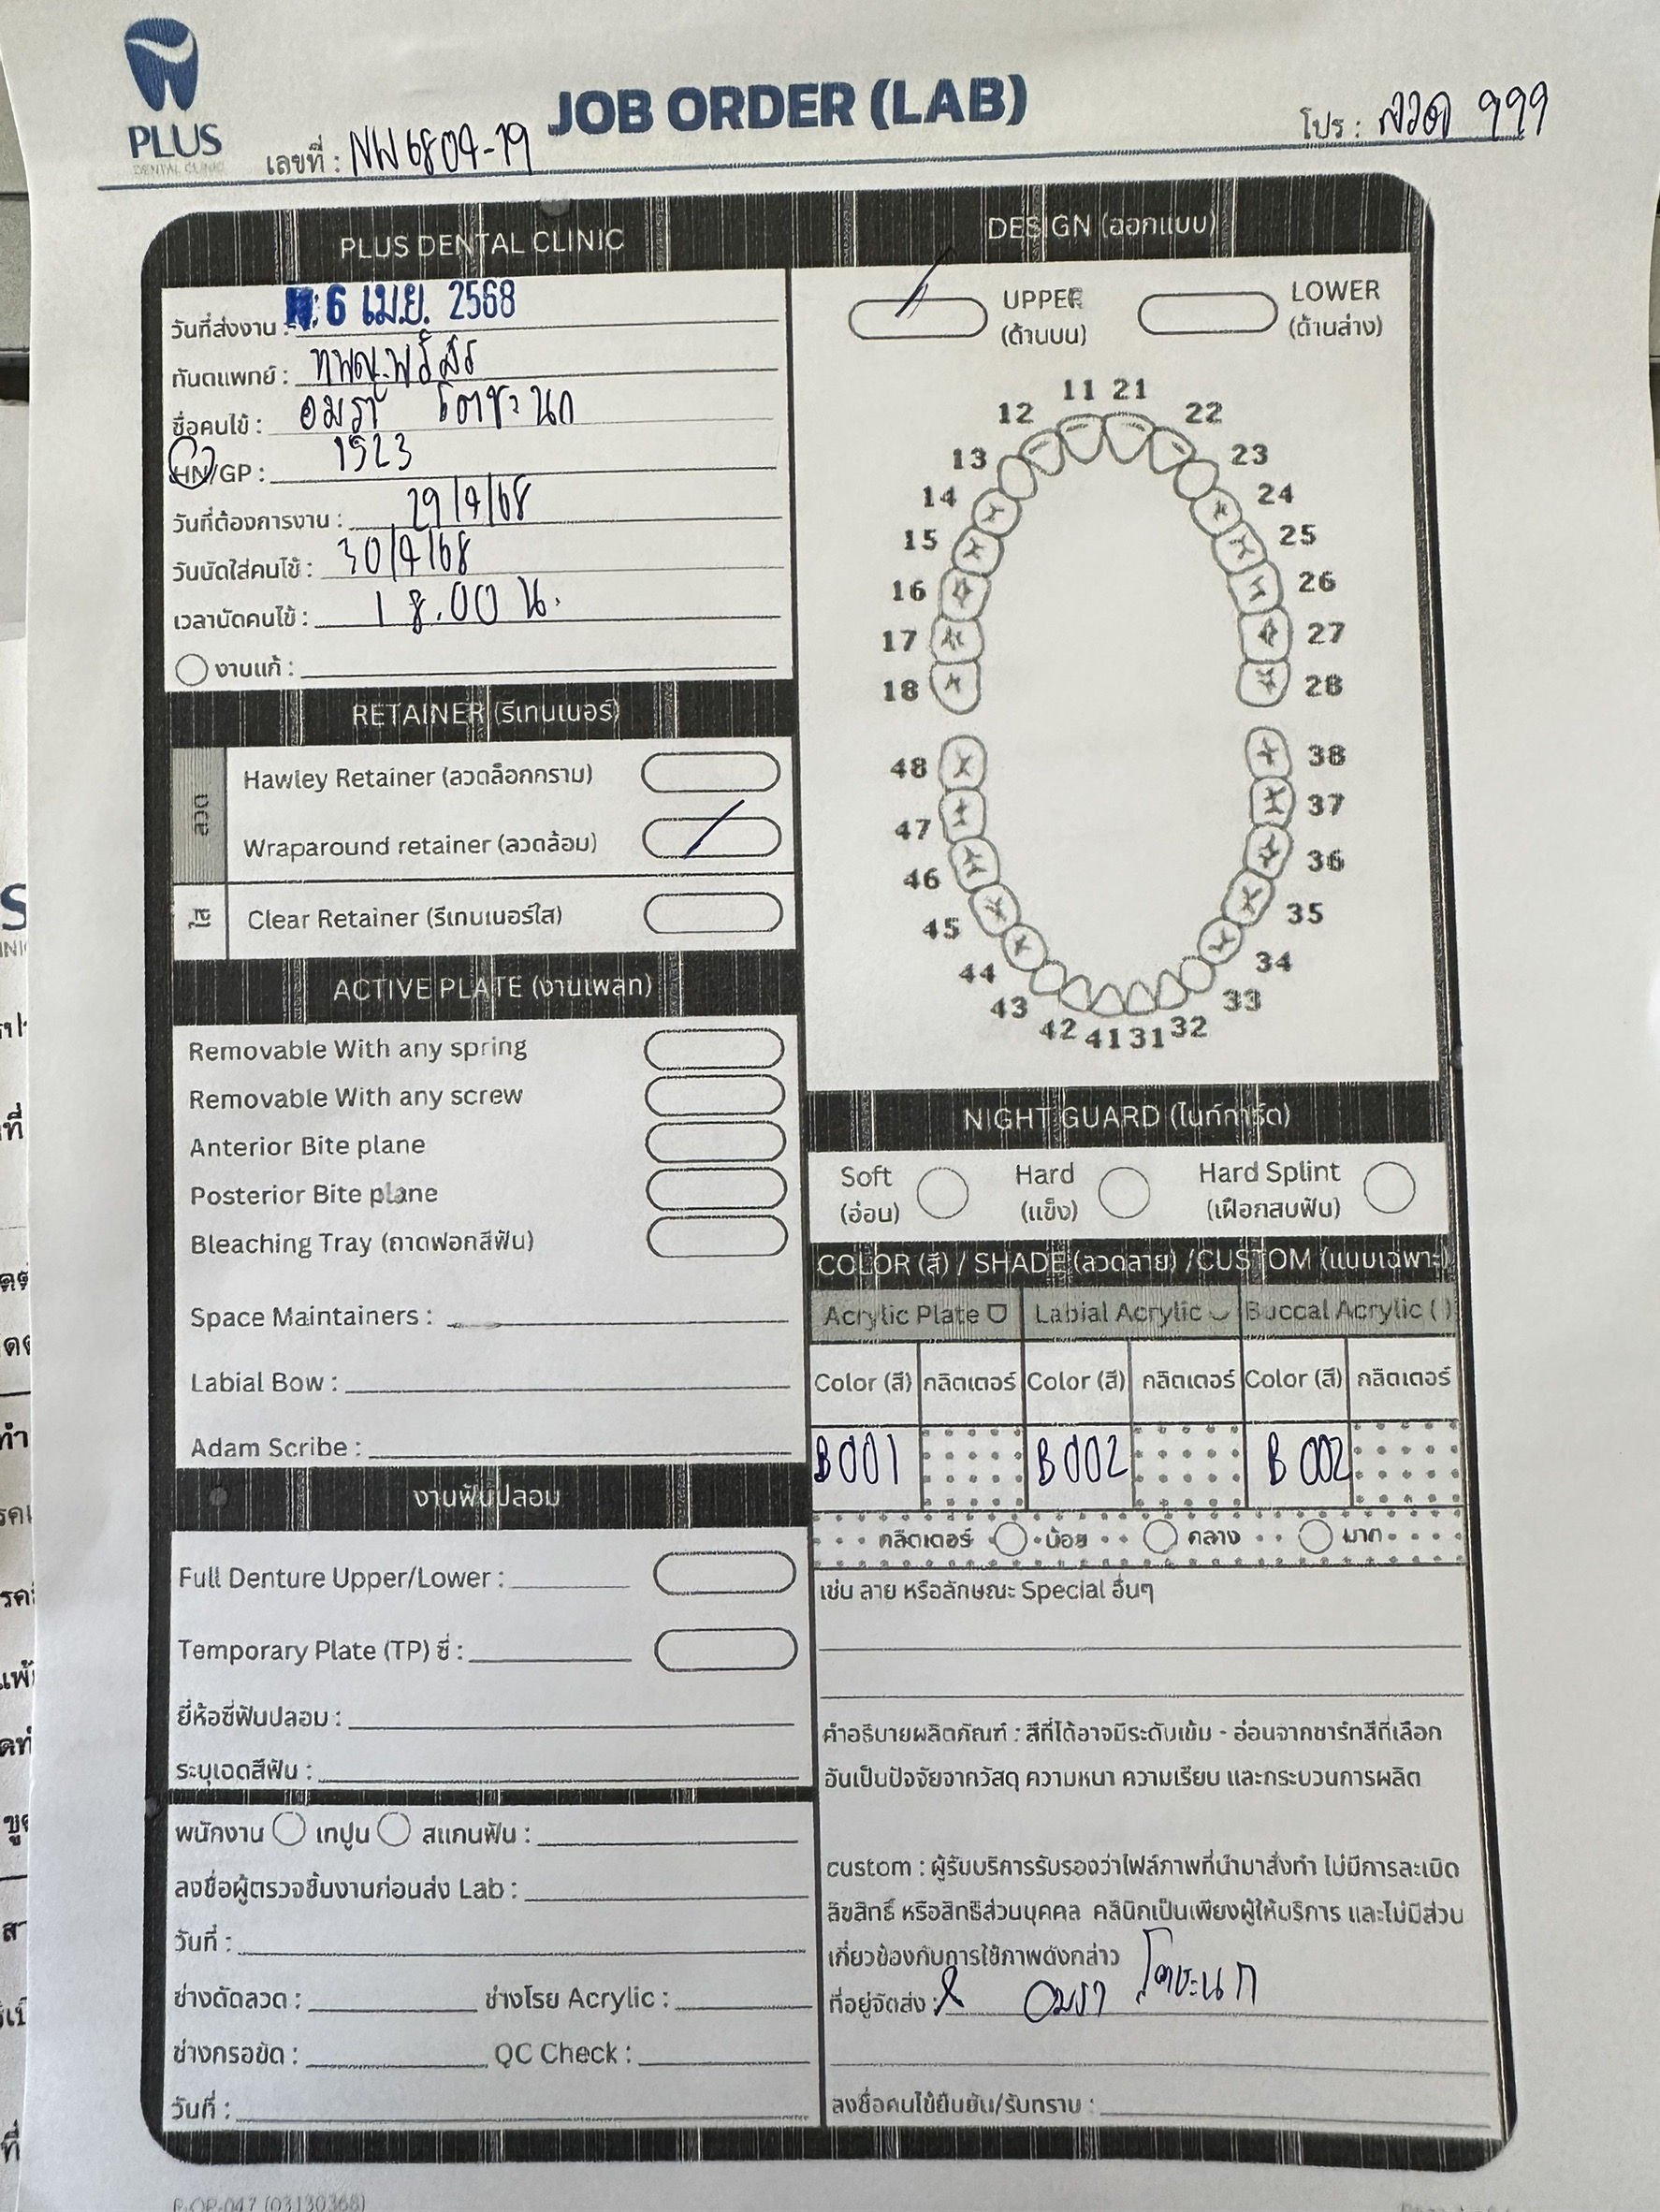 PLUS
DENTAL CLINIC
JOB ORDER (LAB)
เลขที่ : NW6804-19
โปร : ลวด 999
PLUS DENTAL CLINIC
วันที่ส่งงาน : 6 เม.ย. 2568
ทันตแพทย์ : ทพญ.
ชื่อคนไข้ : อมรา โตชะนก
HN/GP : 1523
วันที่ต้องการงาน : 29/4/68
วันนัดใส่คนไข้ : 30/4/68
เวลานัดคนไข้ : 18.00 น.
งานแก้ :
RETAINER (รีเทนเนอร์)
ลวด
Hawley Retainer (ลวดล็อกกราม)
Wraparound retainer (ลวดล้อม)
ใส
Clear Retainer (รีเทนเนอร์ใส)
ACTIVE PLATE (งานเพลท)
Removable With any spring
Removable With any screw
Anterior Bite plane
Posterior Bite plane
Bleaching Tray (ถาดฟอกสีฟัน)
Space Maintainers :
Labial Bow :
Adam Scribe :
งานฟันปลอม
Full Denture Upper/Lower :
Temporary Plate (TP) ซี่ :
ยี่ห้อซี่ฟันปลอม :
ระบุเฉดสีฟัน :
พนักงาน เทปูน สแกนฟัน :
ลงชื่อผู้ตรวจชิ้นงานก่อนส่ง Lab :
วันที่ :
ช่างดัดลวด : ช่างโรย Acrylic :
ช่างกรอขัด : QC Check :
วันที่ :
DESIGN (ออกแบบ)
UPPER LOWER
(ด้านบน) (ด้านล่าง)
11 21
12 22
13 23
14 24
15 25
16 26
17 27
18 28
48 38
47 37
46 36
45 35
44 34
43 33
42 41 31 32
NIGHT GUARD (ไนท์การ์ด)
Soft Hard Hard Splint
(อ่อน) (แข็ง) (เฝือกสบฟัน)
COLOR (สี) / SHADE (ลวดลาย) /CUSTOM (แบบเฉพาะ)
Acrylic Plate Labial Acrylic Buccal Acrylic ( )
Color (สี) กลิตเตอร์ Color (สี) กลิตเตอร์ Color (สี) กลิตเตอร์
B001 B002 B002
กลิตเตอร์ น้อย กลาง มาก
เช่น ลาย หรือลักษณะ Special อื่นๆ
คำอธิบายผลิตภัณฑ์ : สีที่ได้อาจมีระดับเข้ม - อ่อนจากชาร์ทสีที่เลือก
อันเป็นปัจจัยจากวัสดุ ความหนา ความเรียบ และกระบวนการผลิต
custom : ผู้รับบริการรับรองว่าไฟล์ภาพที่นำมาสั่งทำ ไม่มีการละเมิด
ลิขสิทธิ์ หรือสิทธิส่วนบุคคล คลินิกเป็นเพียงผู้ให้บริการ และไม่มีส่วน
เกี่ยวข้องกับการใช้ภาพดังกล่าว
ที่อยู่จัดส่ง : อมรา โตชะนก
ลงชื่อคนไข้ยืนยัน/รับทราบ :
P-OP-047 (03130368)